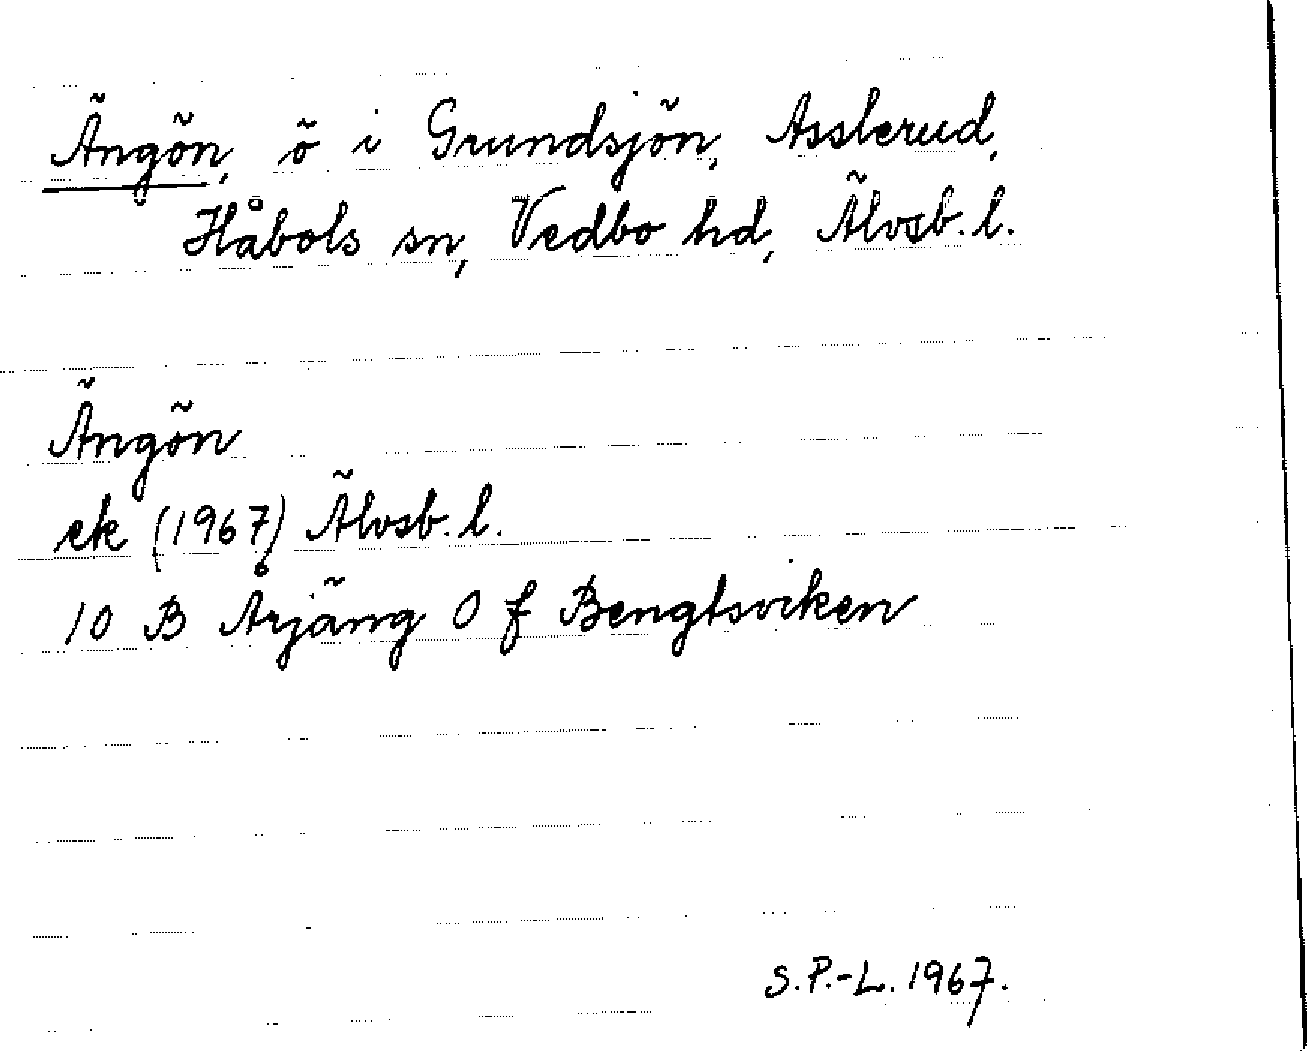 Ängön, ö i Grundsjön, Asslerud,
Håbols sn, Vedbo hd, Älvsb. l.
Ängön
ek (1967) Älvsb. l.
10 B Årjäng 0 f Bengtsviken
S.P.-L. 1967.